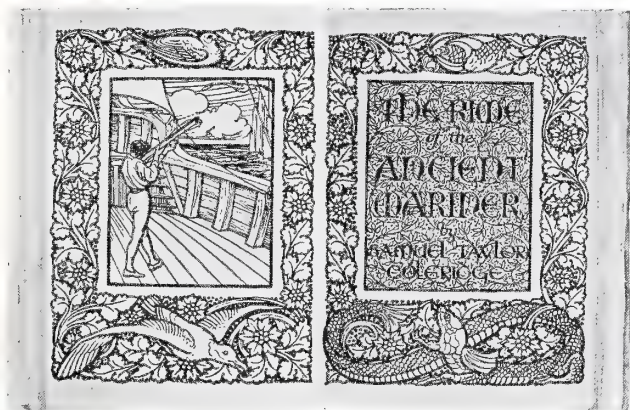 THE RIME
of the
ANCIENT
MARINER
by
SAMUEL TAYLOR
COLERIDGE